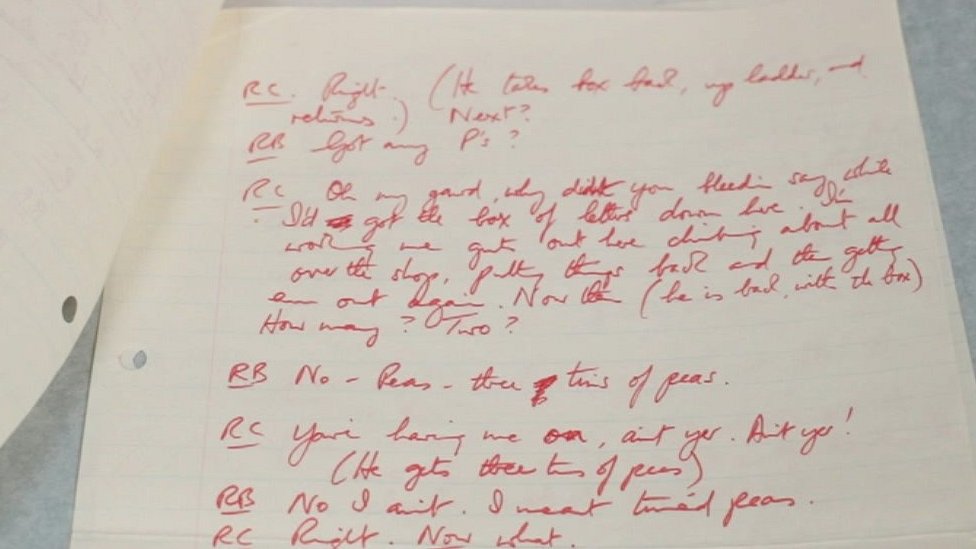 RC. Right. (He takes box back, up ladder, and
returns.) Next?
RB Got any P's?
RC Oh my gawd, why didn't you bleedin say while
I'd got the box of letters down here. I'm
working me guts out here climbing about all
over the shop, putting things back and then getting
em out again. Now then (he is back, with the box)
How many? Two?
RB No - Peas - three tins of peas.
RC You're having me on, aint yer. Aint yer!
(He gets three tins of peas)
RB No I aint. I meant tinned peas.
RC Right. Now what.